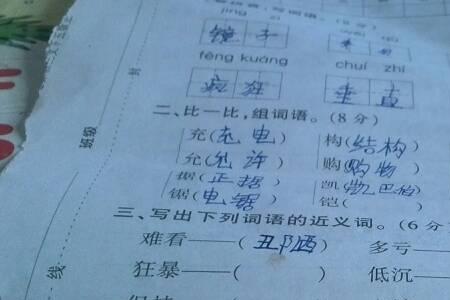 写词语。(8分)
jìng zi
镜 子
fēng kuáng chuí zhí
疯 狂 垂 直
二、比一比,组词语。(8分)
充(充电) 构(结构)
允(允许) 购(购物)
据(正据) 凯(凯巴伯)
锯(电锯) 铠( )
三、写出下列词语的近义词。(6分
难看——(丑陋) 多亏—
狂暴——( ) 低沉—
班级
封
线